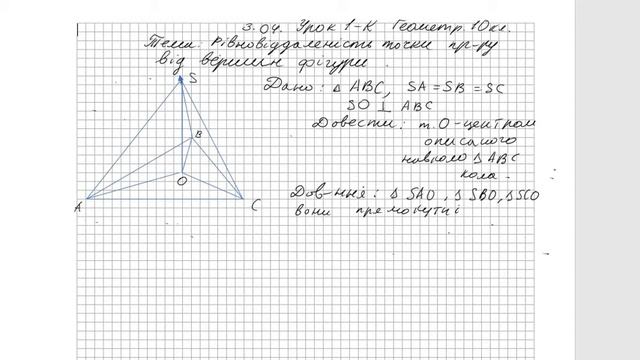 3.04. Урок 1-К Геометр. 10кл.
Тема: Рівновіддаленість точки пр-ру
від вершин фігури.
S
Дано: △ ABC, SA = SB = SC
SO ⊥ ABC
Довести: т. О-центром
B
описаного
навколо △ ABC
O
кола.
A
C
Дов-ння: △ SAO, △ SBO, △ SCO
вони прямокутні